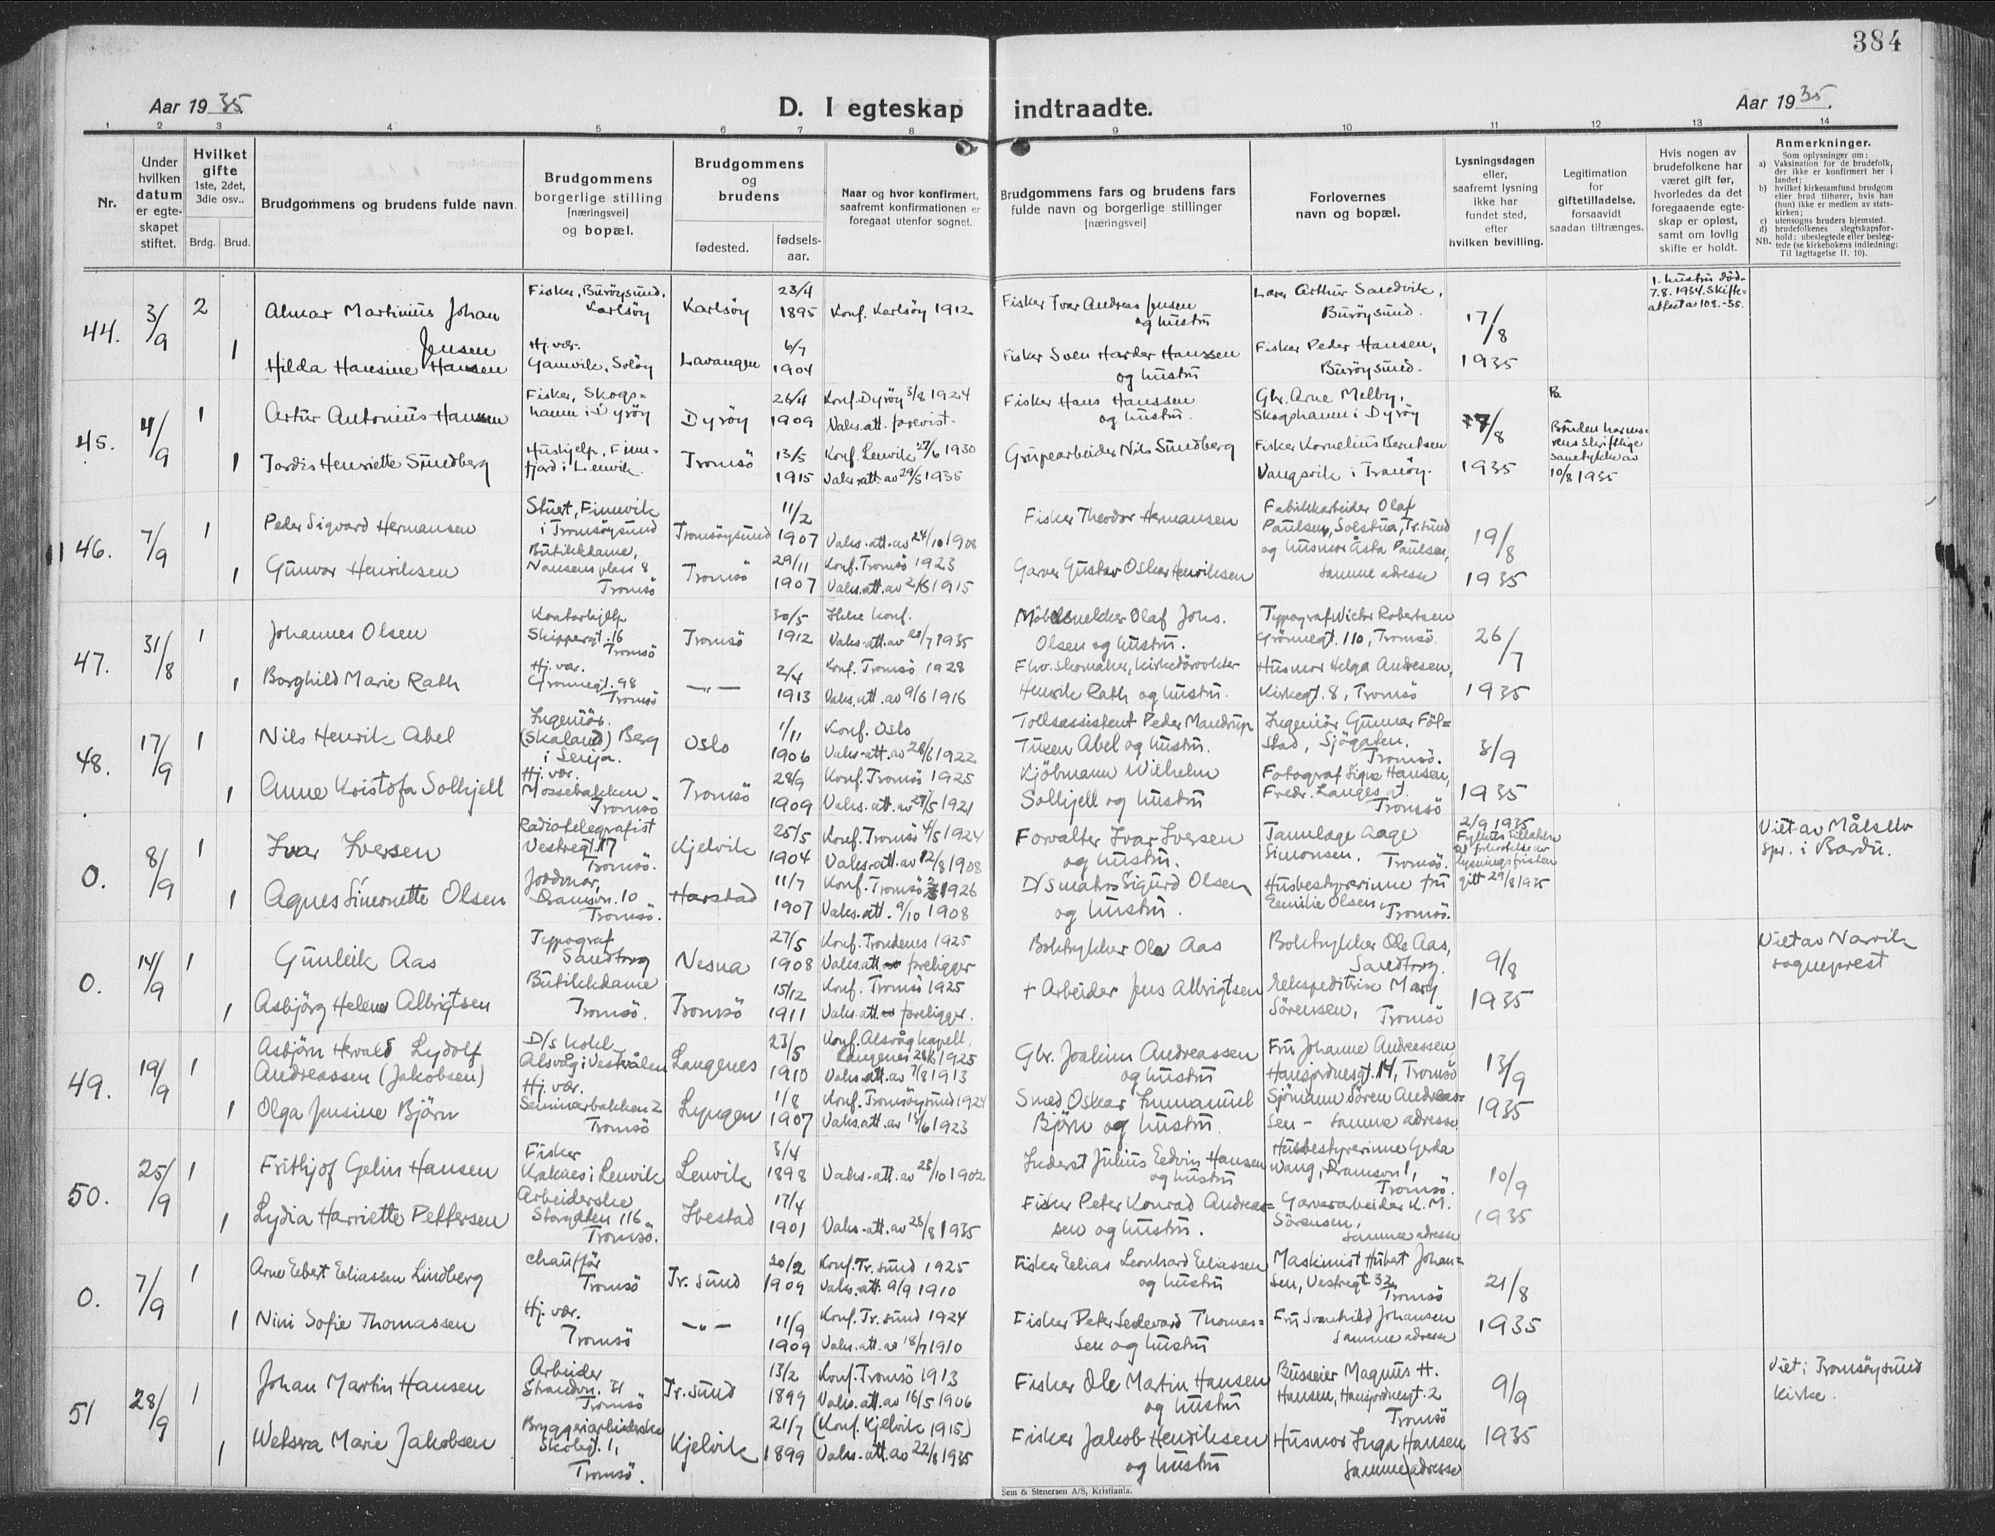 384
Aar 1935.
D. I egteskap indtraadte.
Aar 1935.
1 2 3 4 5 6 7 8 9 10 11 12 13 14
Nr.
Under hvilken datum er egteskapet stiftet.
Hvilket gifte 1ste, 2det, 3die osv..
Brdg. Brud.
Brudgommens og brudens fulde navn.
Brudgommens borgerlige stilling [næringsvei] og bopæl.
Brudgommens og brudens
fødested.
fødselsaar.
Naar og hvor konfirmert, saafremt konfirmationen er foregaat utenfor sognet.
Brudgommens fars og brudens fars fulde navn og borgerlige stillinger [næringsvei]
Forlovernes navn og bopæl.
Lysningsdagen eller, saafremt lysning ikke har fundet sted, efter hvilken bevilling.
Legitimation for giftetilladelse, forsaavidt saadan tiltrænges.
Hvis nogen av brudefolkene har været gift før, hvorledes da det foregaaende egteskap er opløst, samt om lovlig skifte er holdt.
Anmerkninger.
Som oplysninger om:
a) Vaksination for de brudefolk, der ikke er konfirmert her i landet;
b) hvilket kirkesamfund brudgom eller brud tilhører, hvis han (hun) ikke er medlem av statskirken;
c) utensogns bruders hjemsted.
d) brudefolkenes slegtskapsforhold: ubeslegtede eller beslegtede (se kirkebokens indledning: Til iagttagelse 11, 10).
NB.
44. 3/9 2 Almar Martinius Johan Jensen
Fisker, Burøysund, Karlsøy
Karlsøy 23/4 1895 Konf. Karlsöy 1912
Fisker Ivar Andreas Jensen og hustru
Lærer Arthur Sandvik, Burøysund.
17/8 1935
1. hustru död 7.8.1934. Skifteattest av 10 8.-35.
1 Hilda Hansine Hansen
Hj.vær. Gamvik, Soløy
Lavangen 6/7 1904
Fisker Sven Harder Hanssen og hustru
Fisker Peder Hansen, Burøysund.
45. 4/9 1 Artur Antonius Hanssen
Fisker, Skogshamn i Dyröy
Dyröy 26/4 1909 Konf. Dyröy 3/8 1924
Vaks.att. forevist.
Fisker Hans Hanssen og hustru.
Gbr. Arne Melby, Skogshamn i Dyröy
17/8 1935
Bruden har morens skriftlige samtykke av 10/8 1935
1 Jordis Henriette Sundberg
Hushjelp, Finnfjord i Lenvik.
Tromsö 13/5 1915 Konf. Lenvik 27/6 1930
Vaks.att. av 29/5 1935
Grupearbeider Nils Sundberg
Fisker Kornelius Berntsen Vangsvik i Tranöy.
46. 7/9 1 Peder Sigvard Hermansen
Stuert, Finnvik i Tromsöysund
Tromsöysund 11/2 1907 Vaks.att.av 24/10 1908
Fisker Theodor Hermansen
Fabrikkarbeider Olaf Paulsen, Solstua, Tr.sund og husmor Åsta Paulsen, samme adresse
19/8 1935
1 Gunvor Henriksen
Butikkdame, Nansens plass 8 Tromsö
Tromsö 29/11 1907 Konf. Tromsö 1923
Garver Gustav Oskar Henriksen
47. 31/8 1 Johannes Olsen
Kontorhjelp Skippergt. 16 Tromsö
Tromsö 30/5 1912 Ikke konf.
Vaks.att.av 20/7 1935
Möbelsnekker Olaf Johs. Olsen og hustru.
Typograf Victor Robertsen Grönnegt. 110, Tromsö.
26/7 1935
1 Borghild Marie Rath
Hj. vær. Grönnegt. 98 Tromsö
— „ — 2/4 1913 Konf. Tromsö 1928
Vaks.att.av 9/6 1916
Fhv. skomaker, Henrik Rath og hustru.
Husmor Helga Andresen, Kirkegt. 8, Tromsö
48. 17/9 1 Nils Henrik Abel
Ingeniör. (Skaland) Berg i Senja.
Oslo 1/11 1906 Konf. Oslo
Vaks-att.av 28/6 1922
Tollassistent Peder Mandrup Tusen Abel og hustru.
Ingeniör Gunnar Fölstad, Sjögaten, Tromsö.
3/9 1935
1 Anne Kristofa Solhjell
Hj. vær. Mossebakken Tromsö
Tromsö 28/9 1909 Konf. Tromsö 1925
Vaks.att.av 27/5 1921
Kjöbmann Wilhelm Solhjell og hustru
Fotograf Signe Hansen, Fredr. Langes gt. Tromsö
0. 8/9 1 Ivar Iversen
Radiotelegrafist Vestregt. 17 Tromsö.
Kjelvik 25/5 1904 Konf. Tromsö 4/5 1924
Vaks.att.av 12/8 1908
Forvalter Ivar Iversen og hustru.
Tannlæge Aage Simonsen, Tromsö.
2/9 1935 gitt 29/8 1935
Viet av Målselv spr. i Bardu.
1 Agnes Simonette Olsen
Jordmor, Dramsvn. 10 Tromsö.
Harstad 11/7 1907 Konf. Tromsö 1926
Vaks.att. 9/10 1908
D/Smatros Sigurd Olsen og hustru.
Husbestyrerinne fru Emilie Olsen, Tromsö.
0. 14/9 1 Gunleik Aas
Typograf Sandtorg
Nesna 27/5 1908 Konf. Trondenes 1925
Vaks.att. foreligger
Boktrykker Ole Aas
Boktrykker Ole Aas, Sandtorg.
9/8 1935
Viet av Narvik sogneprest
1 Asbjörg Helene Albrigtsen
Butikkdame Tromsö.
Tromsö 15/12 1911 Konf. Tromsö 1925
Vaks.att. foreligger.
+ Arbeider Jens Albrigtsen
Ekspeditrise Mary Sörensen, Tromsö
49. 19/9 1 Asbjörn Harald Lydolf Andreassen (Jakobsen)
D/S kokk Alsvåg i Vesterålen
Langenes 23/5 1910 Konf. Alsvåg kapell, Langenes 1925
Vaks.att.av 7/8 1913
Gbr. Joakim Andreassen og hustru
Fru Johanne Andreassen, Hansjordnesgt. 14, Tromsö
13/9 1935
1 Olga Jensine Björn
Hj. vær. Seminarbakken 2 Tromsö
Lyngen 1/8 1907 Konf. Tromsöysund 1924
Vaks.att.av 14/6 1923
Smed Oskar Immanuel Björn og hustru.
Sjömann Sören Andreassen — samme adresse
50. 25/9 1 Frithjof Gelin Hansen
Fisker Kraknes i Lenvik
Lenvik 3/4 1898 Vaks-att.av 23/10 1902
Inderst Julius Edvin Hansen og hustru
Husbestyrerinne Gerda Wang, Dramsvn 1, Tromsö.
10/9 1935
1 Lydia Harriette Pettersen
Arbeiderske Storgaten 116 Tromsö.
Ibestad 17/4 1901 Vaks.att.av 28/8 1935
Fisker Peter Konrad Andreassen og hustru.
Garverarbeider K. M. Sörensen, samme adresse
0. 7/9 1 Arne Edert Eliassen Lindberg
chaufför Tromsö
Tr. sund 20/2 1909 Konf. Tr. sund 1925
Vaks.att. 9/9 1910
Fisker Elias Leonhard Eliassen og hustru
Maskinist Hubert Johansen, Vestregt. 32 Tromsö
21/8 1935
1 Nini Sofie Thomassen
Hj. vær. Tromsö
— „ — 11/9 1909 Konf. Tr. sund 1924
Vaks.att.av 18/7 1910
Fisker Peter Sedevard Thomassen og hustru
Fru Svanhild Johansen samme adresse
51 28/9 1 Johan Martin Hansen
Arbeider Strandvn. 31 Tromsö
Tr.sund 13/2 1899 Konf. Tromsö 1913
Vaks.att.av 16/5 1906
Fisker Ole Martin Hansen og hustru
Busseier Magnus H. Hansen, Hansjordnesgt. 2 Tromsö
9/9 1935
Viet i Tromsöysund kirke.
1 Marie Jakobsen
Bryggeriarbeiderske Skolegt. 1, Tromsö.
Kjelvik 21/7 1899 (Konf. Kjelvik 1915)
Vaks.att.av 22/8 1935
Fisker Jakob Henriksen og hustru
Husmor Inga Hansen samme adresse
Sem & Stenersen A/S, Kristiania.